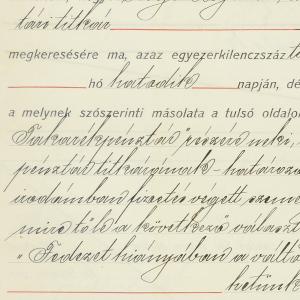 tári titkár
megkeresésére ma, azaz egyezerkilenczszáz
hó hatodik napján, dé
a melynek szószerinti másolata a tulsó oldalo
Takarékpénztár" részére neki,
pénztár titkárjának – határoza
irodámban fizetés végett szeme
mire tőle a következő választ
„ Fedezet hiányában a váltó
hetünk